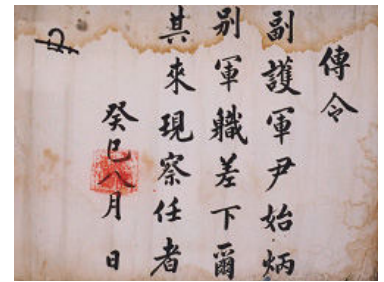 傳令
副護軍尹始炳
別軍職差下爾
其來現察任者
癸巳八月 日